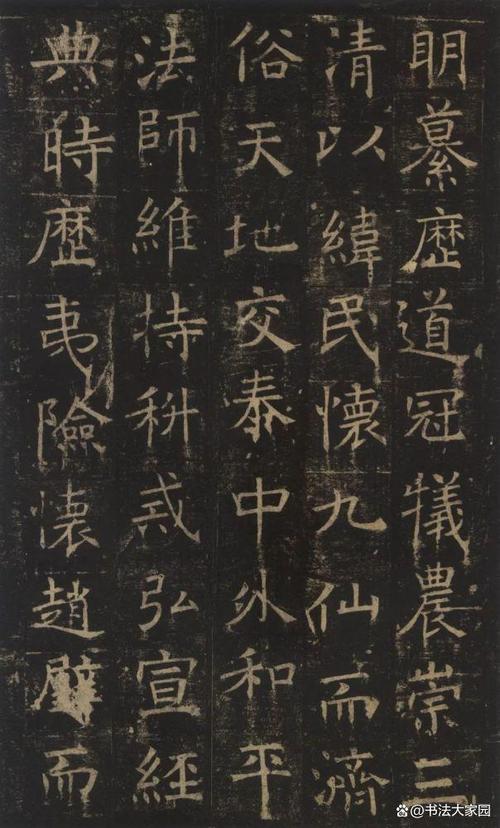 明纂歷道冠犧農崇三
清以緯民懷九仙而濟
俗天地交泰中外和平
法師維持科戒弘宣經
典時歷夷險懷趙璧而
@书法大家园